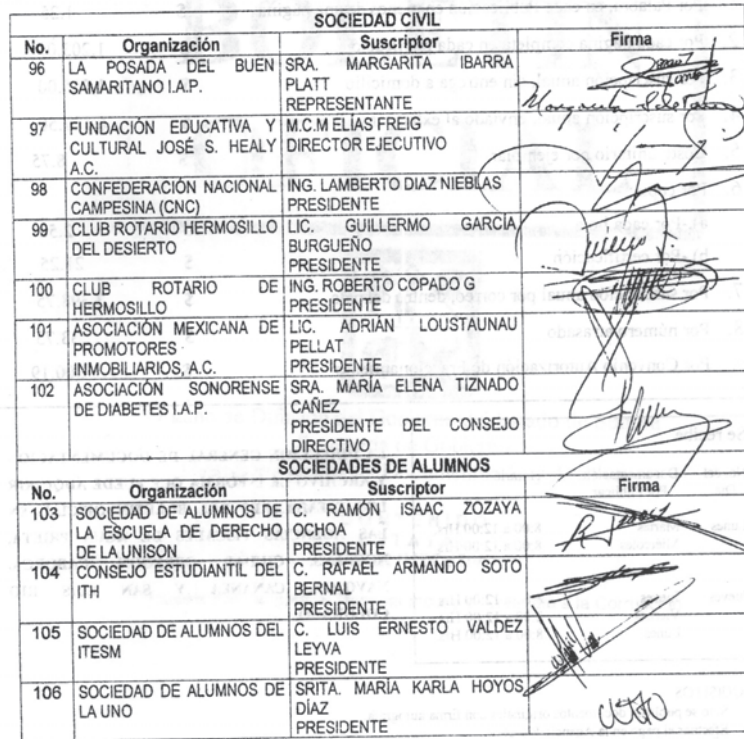 SOCIEDAD CIVIL
No. Organización Suscriptor Firma
96 LA POSADA DEL BUEN SAMARITANO I.A.P. SRA. MARGARITA IBARRA PLATT REPRESENTANTE
97 FUNDACIÓN EDUCATIVA Y CULTURAL JOSÉ S. HEALY A.C. M.C.M ELÍAS FREIG DIRECTOR EJECUTIVO
98 CONFEDERACIÓN NACIONAL CAMPESINA (CNC) ING. LAMBERTO DIAZ NIEBLAS PRESIDENTE
99 CLUB ROTARIO HERMOSILLO DEL DESIERTO LIC. GUILLERMO GARCÍA BURGUEÑO PRESIDENTE
100 CLUB ROTARIO DE HERMOSILLO ING. ROBERTO COPADO G PRESIDENTE
101 ASOCIACIÓN MEXICANA DE PROMOTORES INMOBILIARIOS, A.C. LIC. ADRIÁN LOUSTAUNAU PELLAT PRESIDENTE
102 ASOCIACIÓN SONORENSE DE DIABETES I.A.P. SRA. MARÍA ELENA TIZNADO CAÑEZ PRESIDENTE DEL CONSEJO DIRECTIVO
SOCIEDADES DE ALUMNOS
No. Organización Suscriptor Firma
103 SOCIEDAD DE ALUMNOS DE LA ESCUELA DE DERECHO DE LA UNISON C. RAMÓN ISAAC ZOZAYA OCHOA PRESIDENTE
104 CONSEJO ESTUDIANTIL DEL ITH C. RAFAEL ARMANDO SOTO BERNAL PRESIDENTE
105 SOCIEDAD DE ALUMNOS DEL ITESM C. LUIS ERNESTO VALDEZ LEYVA PRESIDENTE
106 SOCIEDAD DE ALUMNOS DE LA UNO SRITA. MARÍA KARLA HOYOS DÍAZ PRESIDENTE